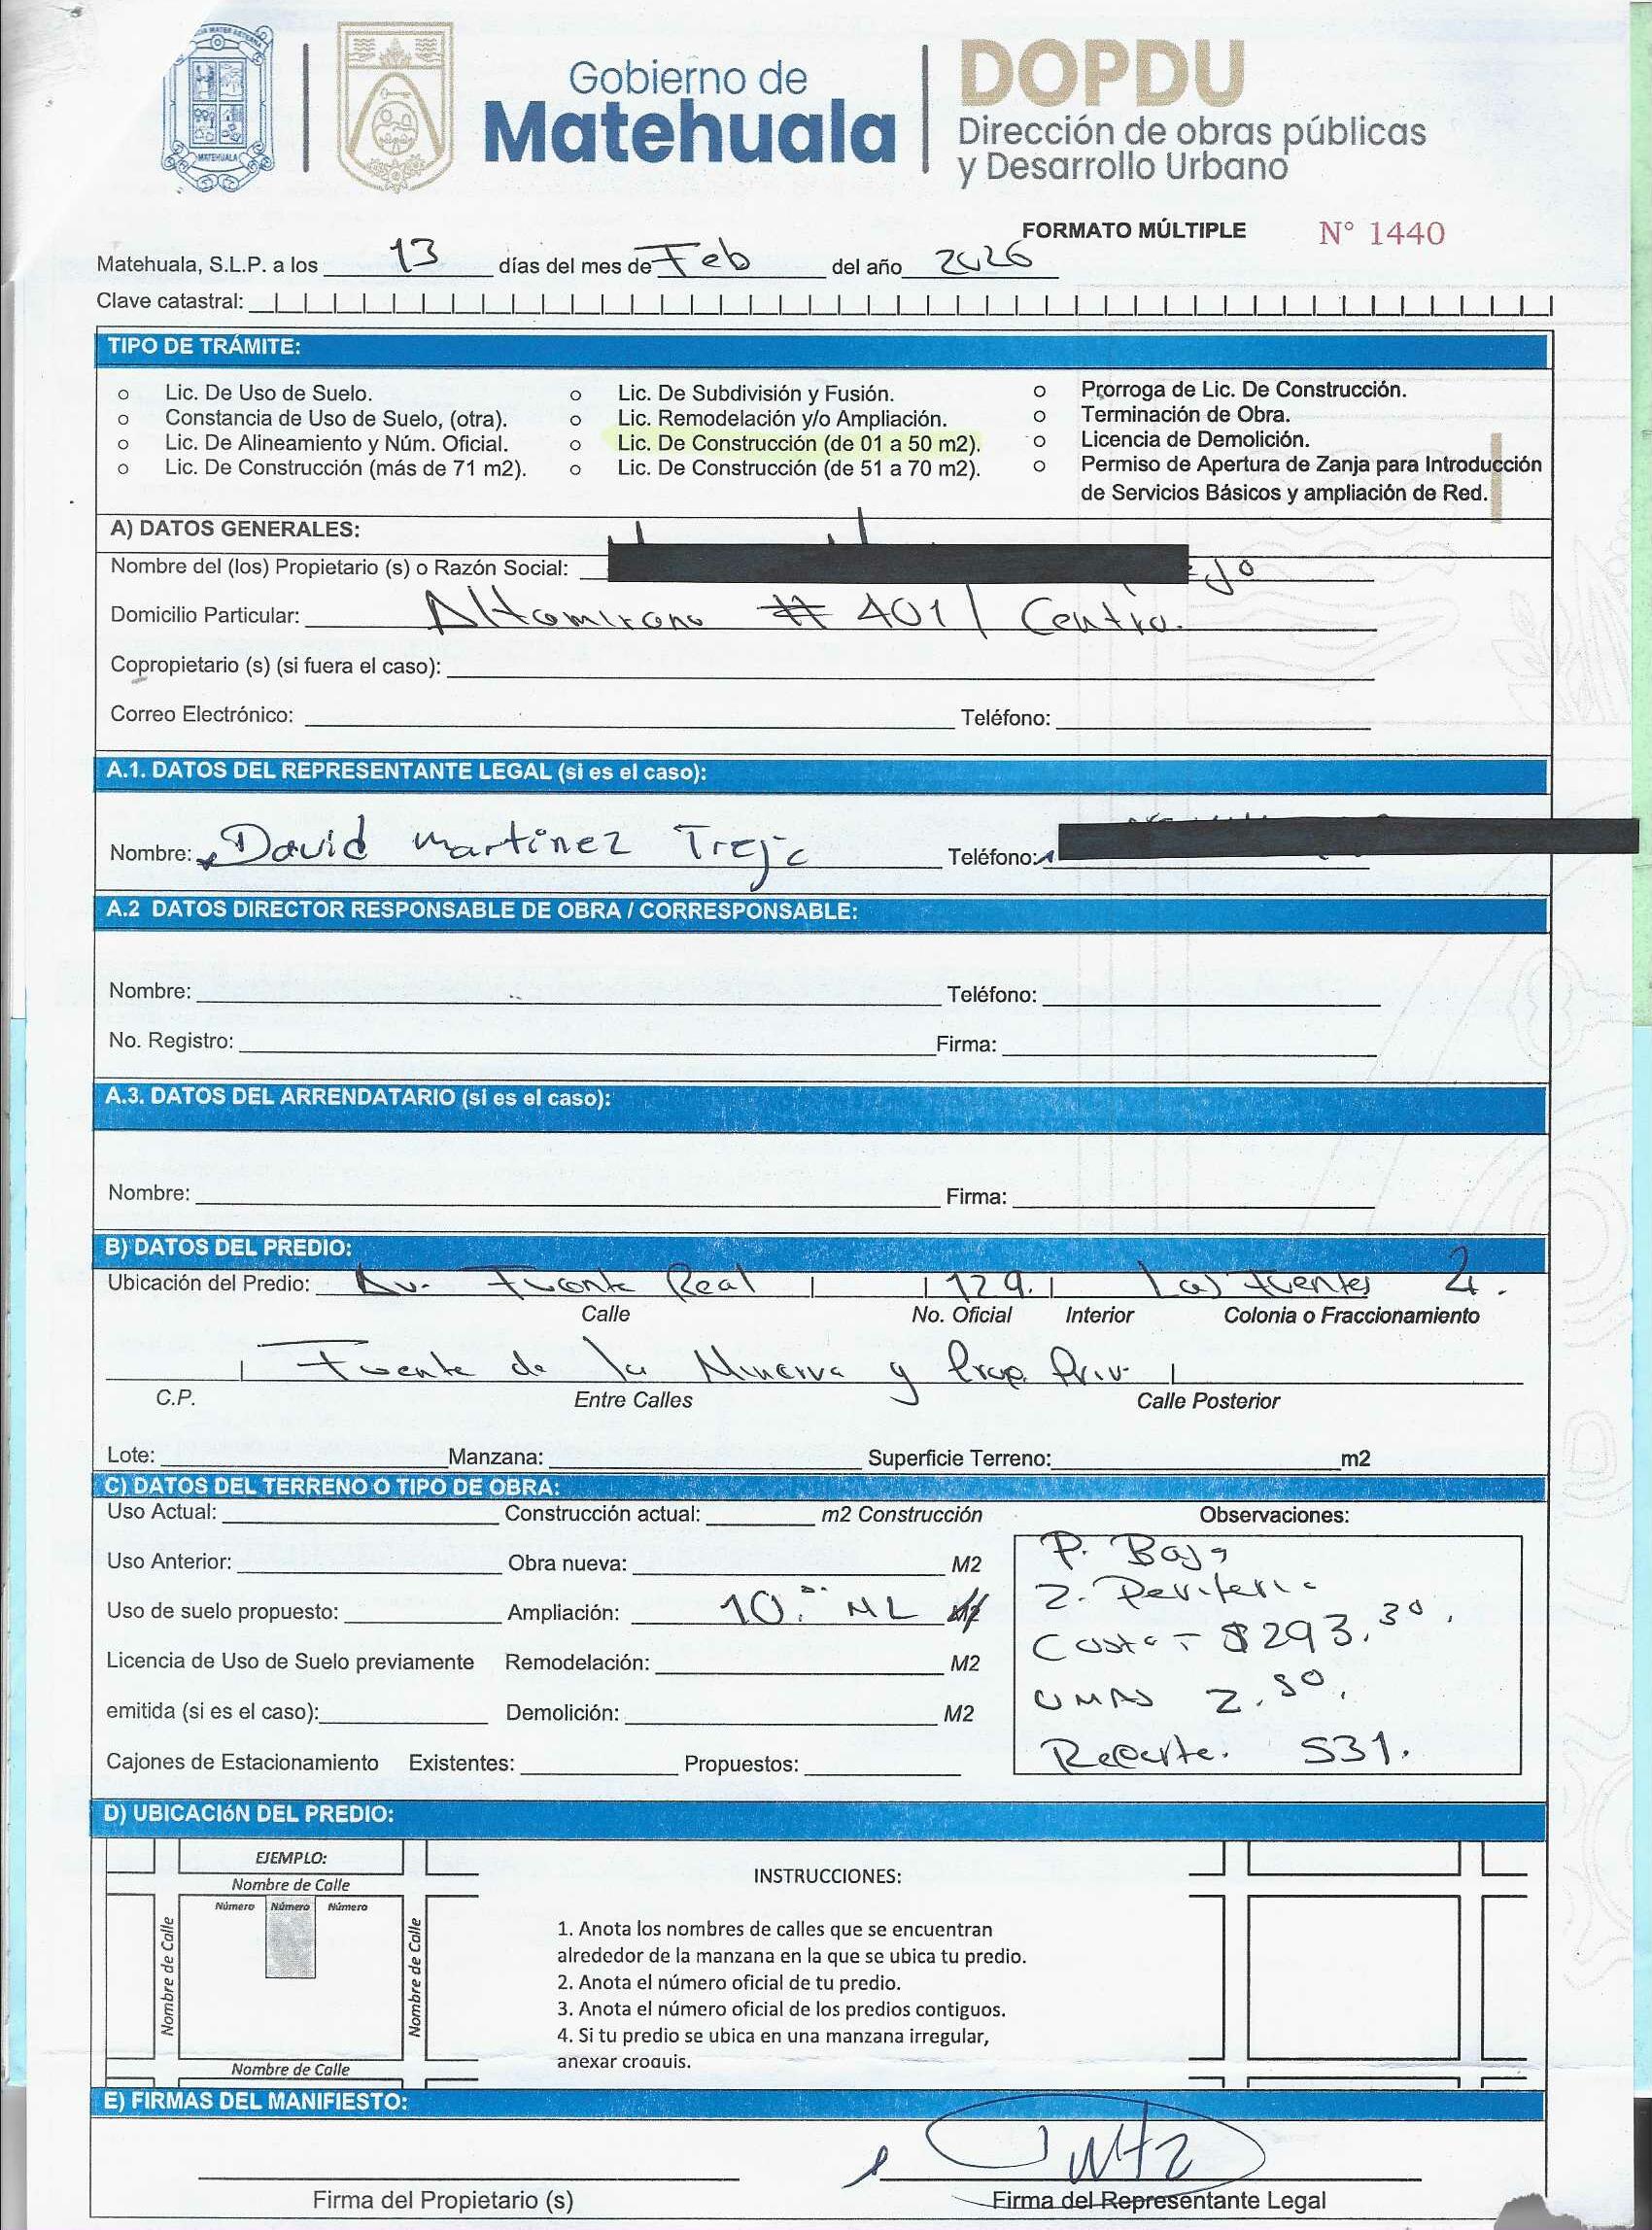 Gobierno de
Matehuala
DOPDU
Dirección de obras públicas
y Desarrollo Urbano
MATEHUALA
FORMATO MÚLTIPLE N° 1440
Matehuala, S.L.P. a los 13 días del mes de Feb del año 2026
Clave catastral:
TIPO DE TRÁMITE:
o Lic. De Uso de Suelo.
o Constancia de Uso de Suelo, (otra).
o Lic. De Alineamiento y Núm. Oficial.
o Lic. De Construcción (más de 71 m2).
o Lic. De Subdivisión y Fusión.
o Lic. Remodelación y/o Ampliación.
o Lic. De Construcción (de 01 a 50 m2).
o Lic. De Construcción (de 51 a 70 m2).
o Prorroga de Lic. De Construcción.
o Terminación de Obra.
o Licencia de Demolición.
o Permiso de Apertura de Zanja para Introducción
de Servicios Básicos y ampliación de Red.
A) DATOS GENERALES:
Nombre del (los) Propietario (s) o Razón Social:
Domicilio Particular: Altamirano # 401 / Centro.
Copropietario (s) (si fuera el caso):
Correo Electrónico: Teléfono:
A.1. DATOS DEL REPRESENTANTE LEGAL (si es el caso):
Nombre: David Martinez Trejo Teléfono:
A.2 DATOS DIRECTOR RESPONSABLE DE OBRA / CORRESPONSABLE:
Nombre: Teléfono:
No. Registro: Firma:
A.3. DATOS DEL ARRENDATARIO (si es el caso):
Nombre: Firma:
B) DATOS DEL PREDIO:
Ubicación del Predio: Av. Fuente Real 129. Las Fuentes 2.
Calle No. Oficial Interior Colonia o Fraccionamiento
Fuente de la Minerva y Prop. Priv.
C.P. Entre Calles Calle Posterior
Lote: Manzana: Superficie Terreno: m2
C) DATOS DEL TERRENO O TIPO DE OBRA:
Uso Actual: Construcción actual: m2 Construcción
Uso Anterior: Obra nueva: M2
Uso de suelo propuesto: Ampliación: 10. ML M2
Licencia de Uso de Suelo previamente Remodelación: M2
emitida (si es el caso): Demolición: M2
Cajones de Estacionamiento Existentes: Propuestos:
Observaciones:
P. Baja
Z. Periferia
Costo - $293.30.
UMAS 2.50.
531.
D) UBICACIóN DEL PREDIO:
EJEMPLO:
Nombre de Calle
Número Número Número
Nombre de Calle
Nombre de Calle
Nombre de Calle
INSTRUCCIONES:
1. Anota los nombres de calles que se encuentran
alrededor de la manzana en la que se ubica tu predio.
2. Anota el número oficial de tu predio.
3. Anota el número oficial de los predios contiguos.
4. Si tu predio se ubica en una manzana irregular,
anexar croquis.
E) FIRMAS DEL MANIFIESTO:
Firma del Propietario (s) Firma del Representante Legal